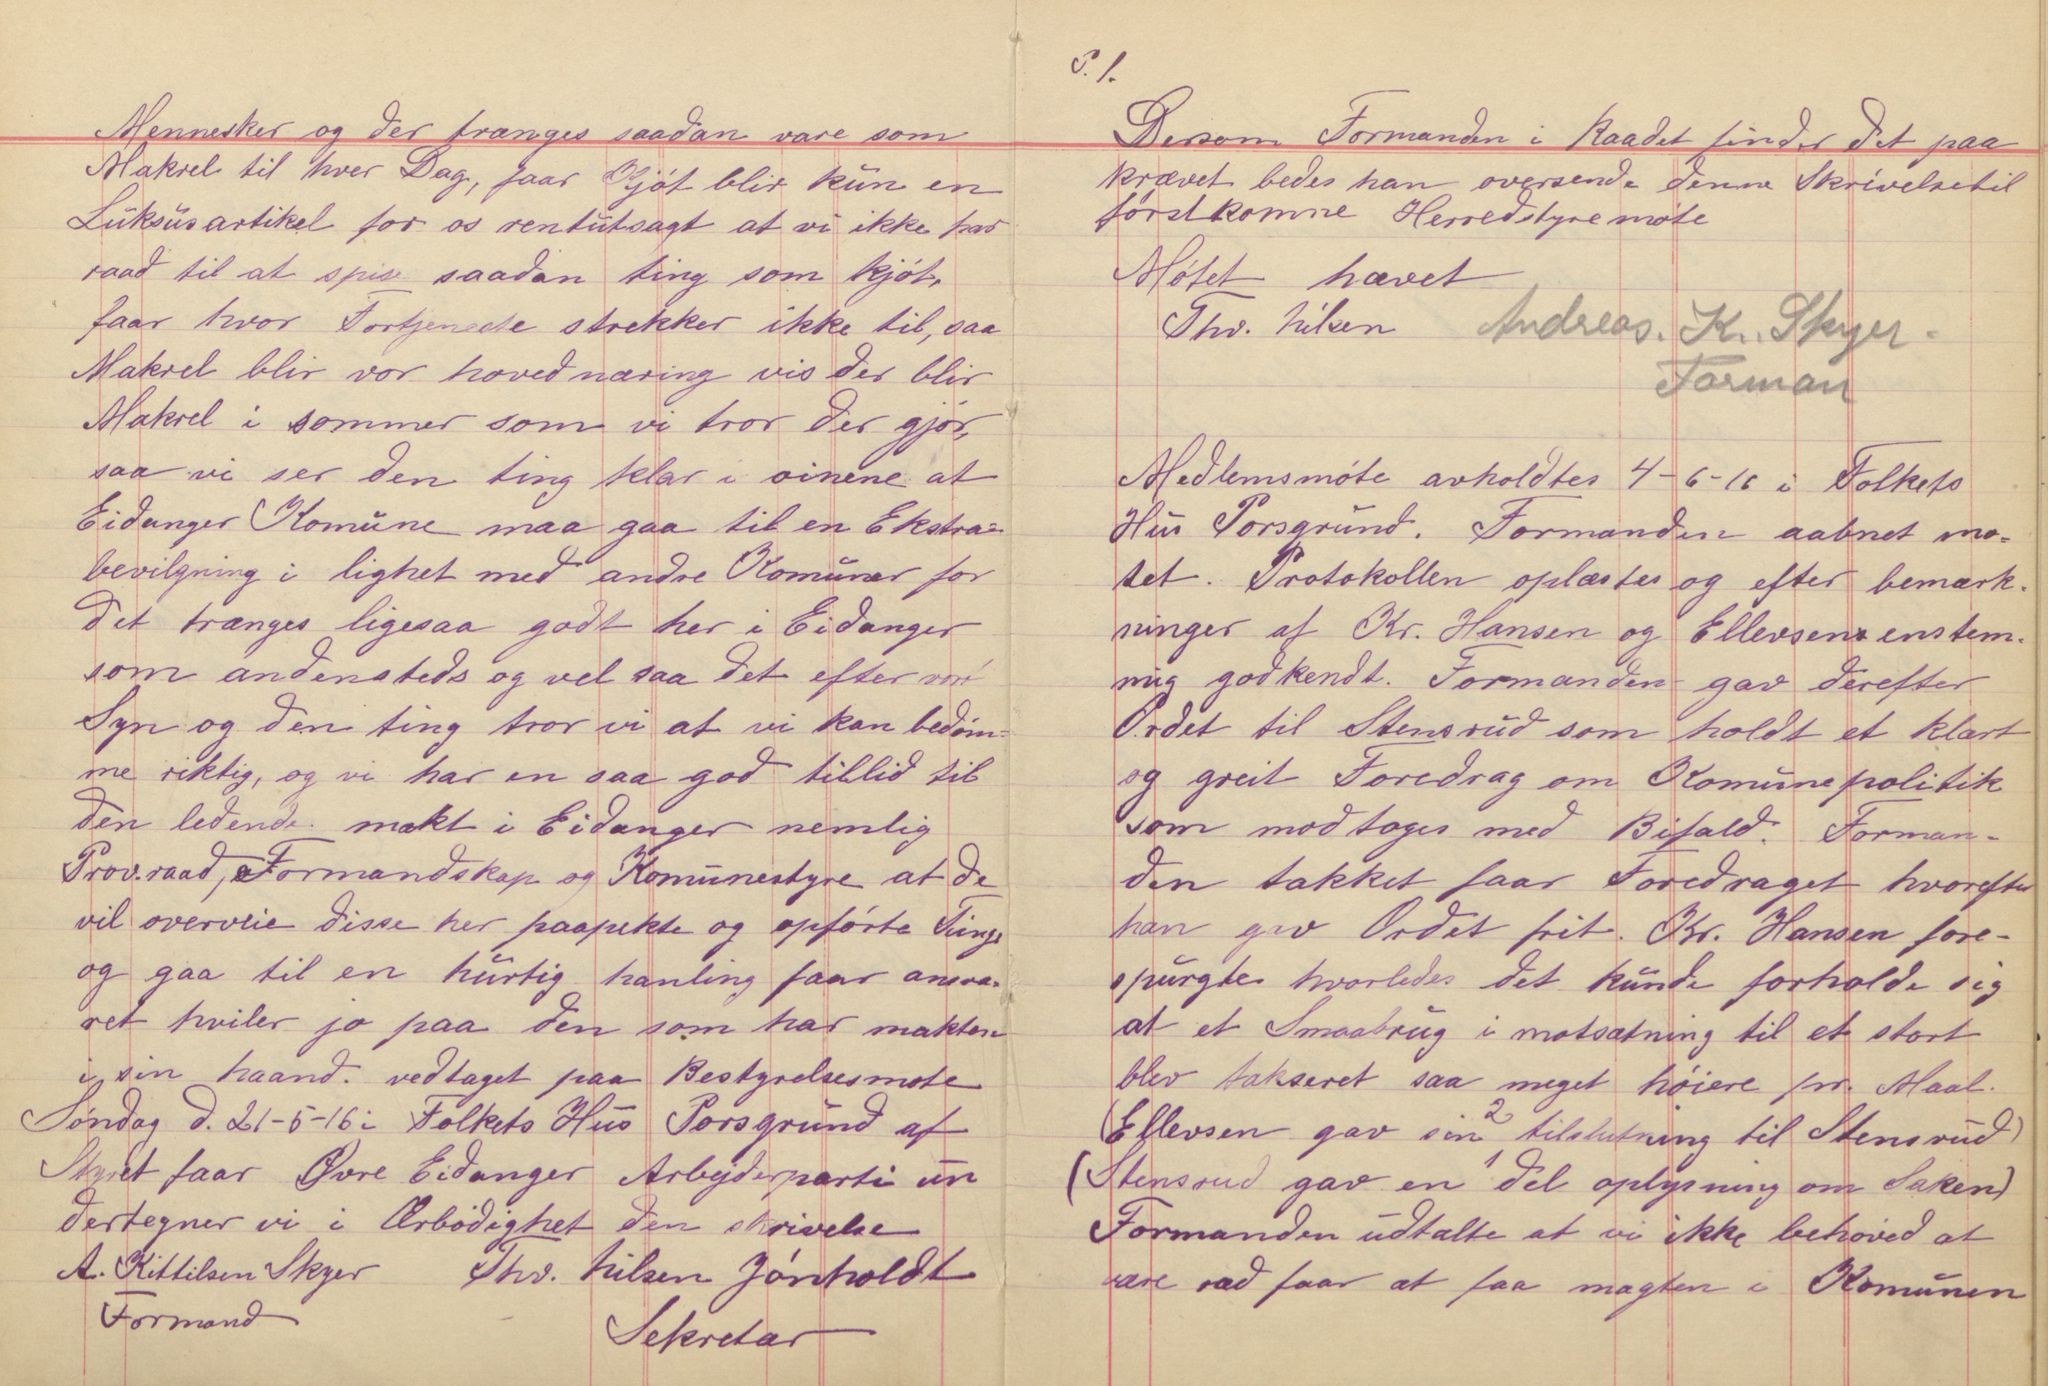 Mennesker og der trænges saadan vare som
Makrel til hver Dag, faar Kjót blir kun en
Luksusartikel for os rentutsagt at vi ikke har
raad til at spise saadan ting som kjót,
faar hvor Fortjeneste strekker ikke til, saa
Makrel blir vor hovednæring vis der blir
Makrel i sommer som vi tror der gjór,
saa vi ser den ting klar i oinene at
Eidanger Komune maa gaa til en Ekstra=
bevilgning i lighet med andre Komuner for
det trænges ligesaa godt her i Eidanger
som andensteds og vel saa det efter vort
Syn og den ting tror vi at vi kan bedóm=
me riktig, og vi har en saa god tillid til
den ledende makt i Eidanger nemlig
Prov.raad, Formandskap og Komunestyre at de
vil overveie disse her paapekte og opfórte Ting
og gaa til en hurtig hanling faar ansva-
ret hviler jo paa den som har makten
i sin haand. vedtaget paa Bestyrelsesmote
Sóndag d. 21-5-16 i Folkets Hus Porsgrund af
Styret faar Øvre Eidanger Arbejderparti un
dertegner vi i Ærbódighet den skrivelse
A. Kittilsen Skyer Thv. Nilsen Jónholdt
Formand
Sekretær
P. 1.
Dersom Formanden i Raadet finder det paa
krævet bedes han oversende denne Skrivelse til
fórstkomne Herredstyremóte
Mótet hævet
Thv. Nilsen Andreas. K. Skyer.
Forman
Medlemsmóte avholdtes 4-6-16 i Folkets
Hus Porsgrund. Formanden aabnet mo-
tet. Protokollen oplæstes og efter bemærk-
ninger af Kr. Hansen og Ellevsen enstem-
mig godkendt. Formanden gav derefter
Ordet til Stensrud som holdt et klart
og greit Foredrag om Komunepolitik
som modtoges med Bifald. Forman-
den takket faar Foredraget hvorefter
han gav Ordet frit. Kr. Hansen fore-
spurgte hvorledes det kunde forholde sig
at et Smaabrug i motsætning til et stort
blev takseret saa meget hóiere pr. Maal.
(Ellevsen gav sin 2 tilslutning til Stensrud)
(Stensrud gav en 1 del oplysning om Saken)
Formanden udtalte at vi ikke behoved at
være ræd faar at faa magten i Komunen